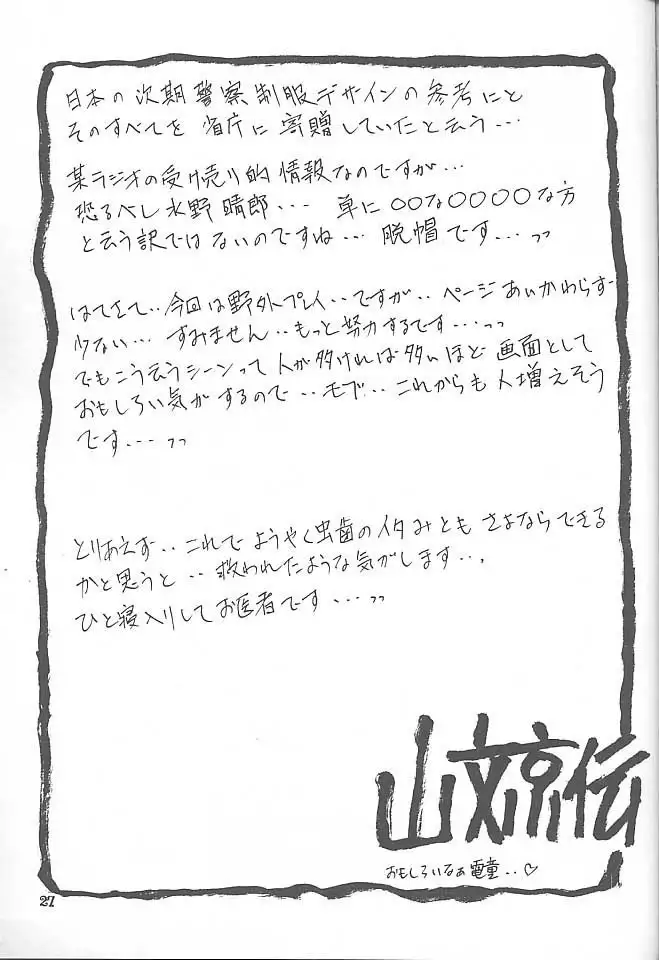 日本の次期警察制服デザインの参考にと
そのすべてを省庁に寄贈していたと云う…
某ラジオの受け売り的情報なのですが…
恐るべし水野晴郎… 単に○○な○○○○な方
と云う訳ではないのですね… 脱帽です…ッッ
はてさて‥今回は野外プレイ‥ですが‥ページあいかわらず
少ない… すみません‥もっと努力するです…ッッ
でもこう云うシーンって人が多ければ多いほど画面として
おもしろい気がするので‥モブ‥これからも人増えそう
です…ッッ
とりあえず‥これでようやく虫歯のイタみともさよならできる
かと思うと‥救われたような気がします…
ひと寝入りしてお医者です…ッッ
山文京伝
おもしろいなぁ電童‥♡
27